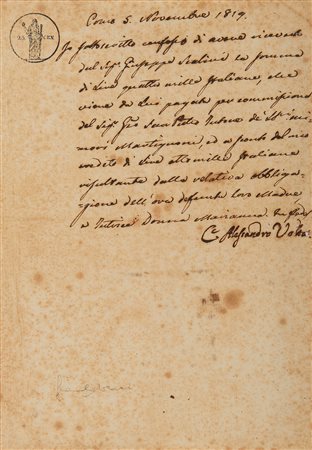 25 CEN
Como 5. Novembre 1819.
Io sottoscritto confesso di avere ricevuto
dal Sig.r Giuseppe la somma
di Lire quattro mille Italiane, che
viene da Lui pagata per commissione
del Sig.r Gio. San Pietro Tutore de S.ri mi-
nori Martignoni, ed a conto del mio
credito di Lire otto mille Italiane
risultante dalla relativa obbliga-
zione dell' ora defunta loro Madre,
e Tutrice Donna Marianna
C. Alessandro Volta